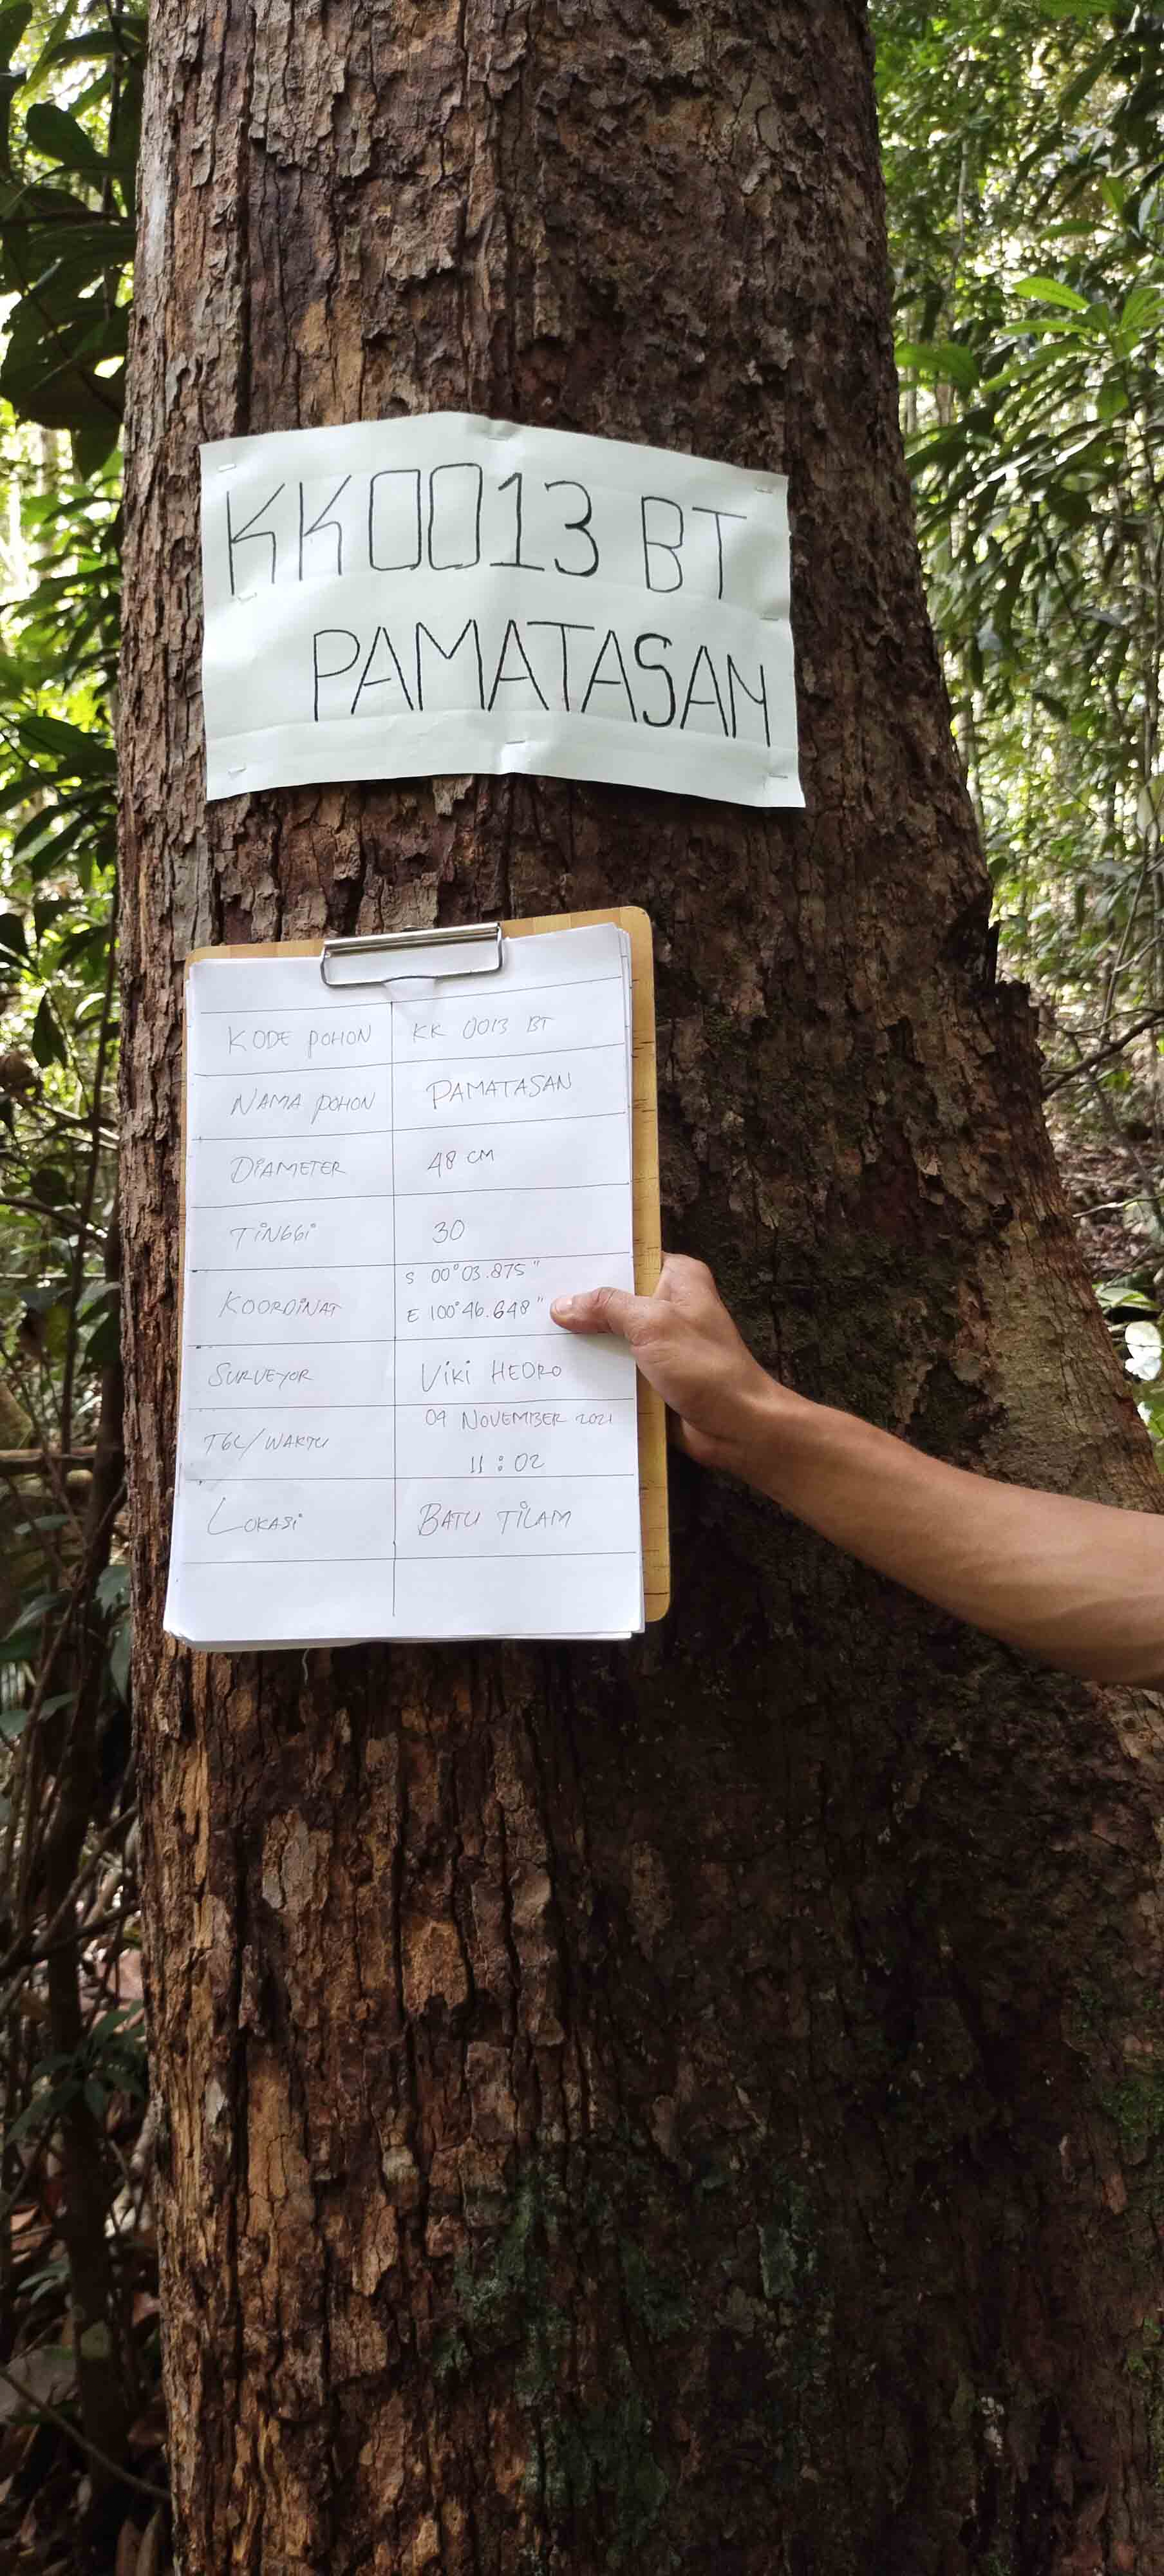 KK0013 BT
PAMATASAN
KODE POHON KK 0013 BT
NAMA POHON PAMATASAN
DIAMETER 48 CM
TINGGI 30
KOORDINAT S 00°03.875"
E 100°46.648"
SURVEYOR VIKI HEDRO
TGL/WAKTU 09 NOVEMBER 2021
11:02
LOKASI BATU TILAM